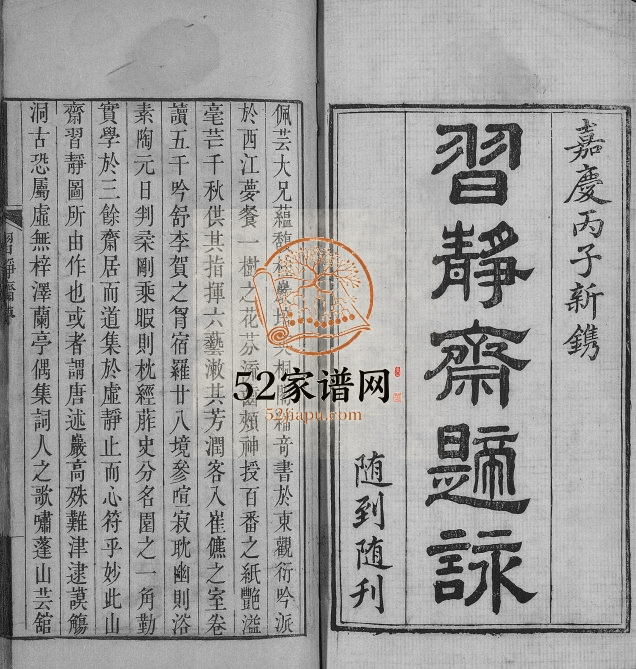 嘉慶丙子新鐫
習靜齋題詠
随到随刊
佩芸大兄蘊馥書於東觀衍吟派
於西江夢餐一樹之花芬流齒頰神授百番之紙艷溢
毫芒千秋供其指揮六藝漱其芳潤客入崔儦之室卷
讀五千吟舒李賀之胷宿羅廿八境參喧寂耽幽則浴
素陶元日判柔剛乘暇則枕經葄史分名園之一角勤
實學於三餘齋居而道集於虛靜止而心符乎妙此山
齋習靜圖所由作也或者謂唐述巖高殊難津逮謨觴
洞古恐屬虛無梓澤蘭亭偶集詞人之歌嘯蓬山芸舘
習靜齋
52家谱网
52jiapu.com